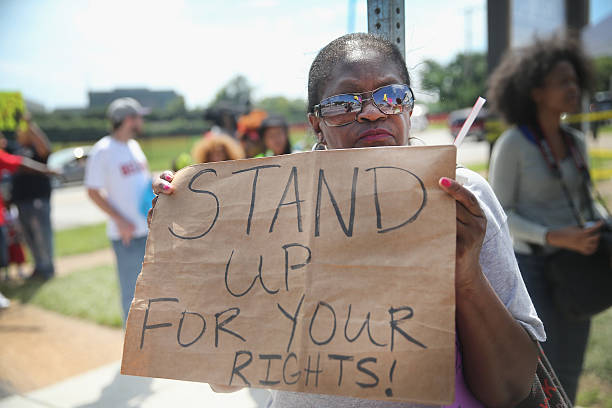 STAND
UP
FOR YOUR
RIGHTS!